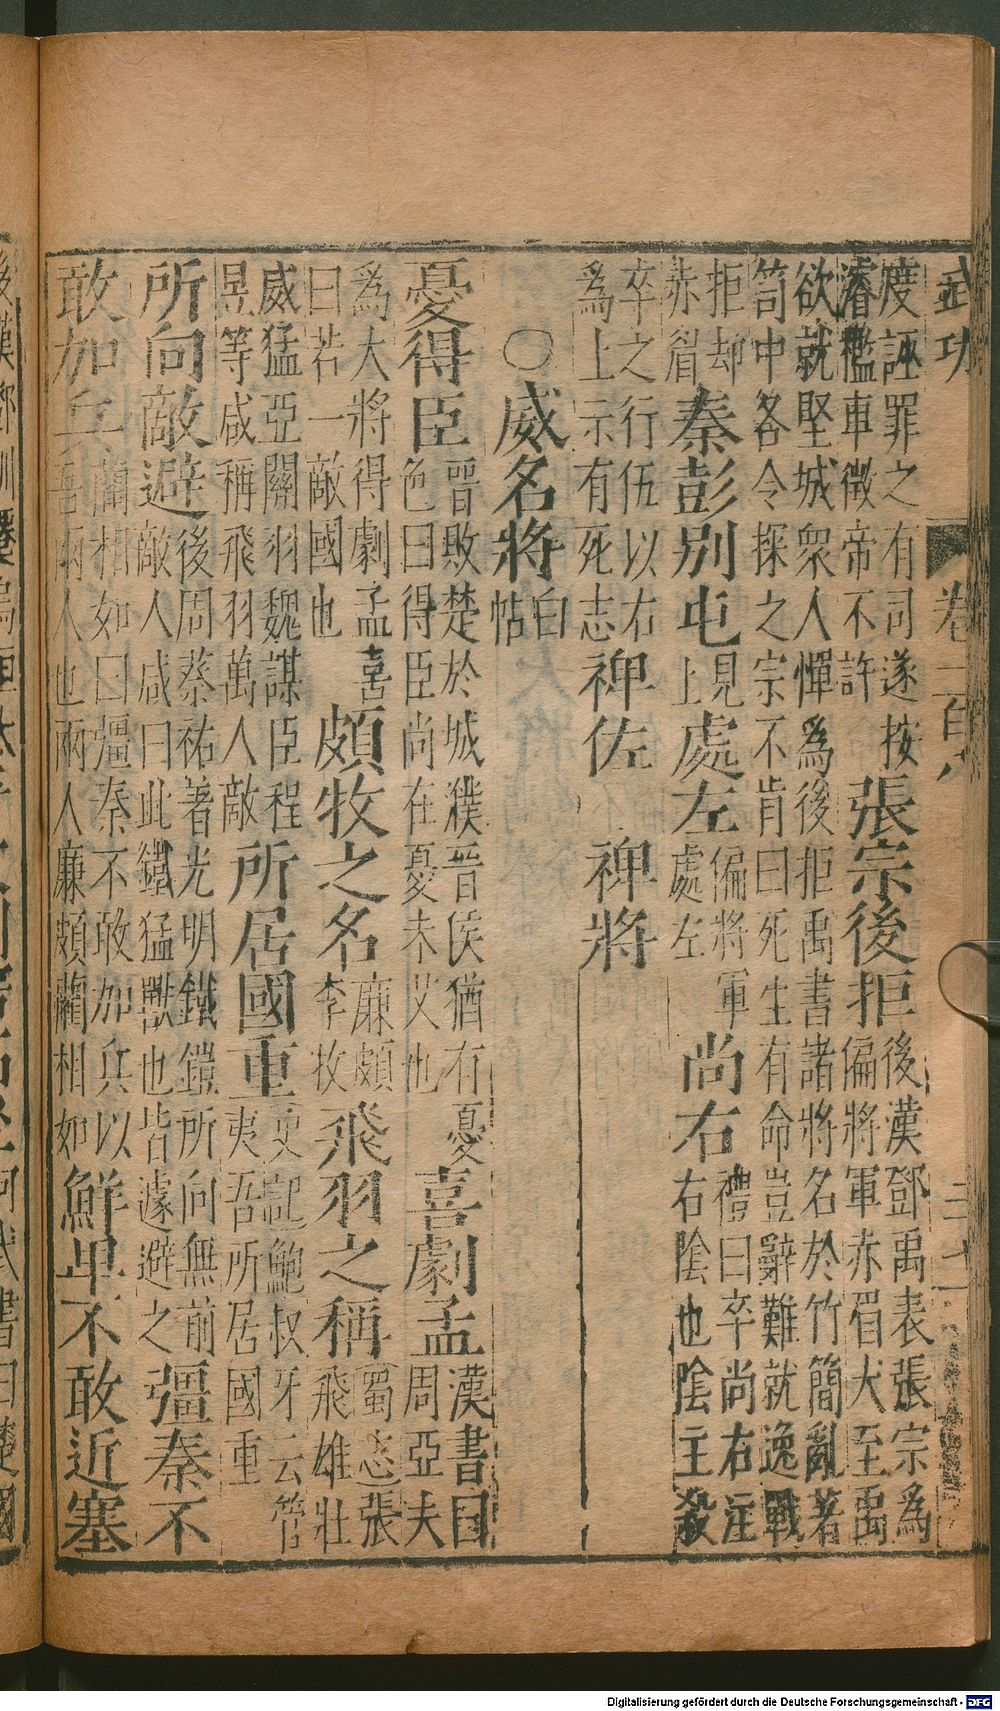 武功 卷一百八 三十一
度誣罪之有司遂按濬檻車徵帝不許張宗後拒後漢鄧禹表張宗為偏將軍赤眉大至禹
欲就堅城眾人憚為後拒禹書諸將名於竹簡亂著笥中各令探之宗不肯曰死生有命豈辭難就逸戰
拒却赤眉秦彭別屯見上處左偏將軍處左尚右禮曰卒尚右注右陰也陰主殺
卒之行伍以右為上示有死志禆佐 禆將
○威名將白帖
憂得臣晉敗楚於城濮晉侯猶有憂色曰得臣尚在憂未艾也喜劇孟漢書曰周亞夫
為大將得劇孟喜曰若一敵國也頗牧之名廉頗李牧飛羽之稱蜀志張飛雄壯
威猛亞關羽魏謀臣程昱等咸稱飛羽萬人敵所居國重史記鮑叔牙云管夷吾所居國重
所向敵避後周蔡祐著光明鐵鎧所向無前敵人咸曰此鐵猛獸也皆遽避之彊秦不
敢加兵藺相如曰彊秦不敢加兵以吾兩人也兩人廉頗藺相如鮮卑不敢近塞
Digitalisierung gefördert durch die Deutsche Forschungsgemeinschaft - DFG